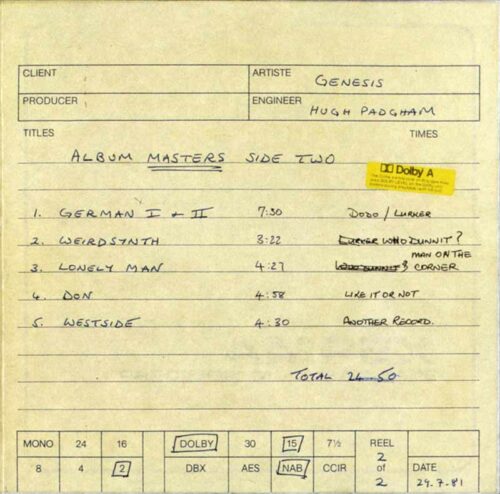 CLIENT ARTISTE GENESIS
PRODUCER ENGINEER HUGH PADGHAM
TITLES TIMES
ALBUM MASTERS SIDE TWO
Dolby A
1. GERMAN I & II 7:30 DODO / LURKER
2. WEIRDSYNTH 3:22 LURKER WHO DUNNIT?
MAN ON THE
3. LONELY MAN 4:27 WHO DUNNIT? CORNER
4. DON 4:58 LIKE IT OR NOT
5. WESTSIDE 4:30 ANOTHER RECORD.
TOTAL 24.50
MONO 24 16 DOLBY 30 15 7½ REEL
2
8 4 2 DBX AES NAB CCIR of DATE
2 29.7.81